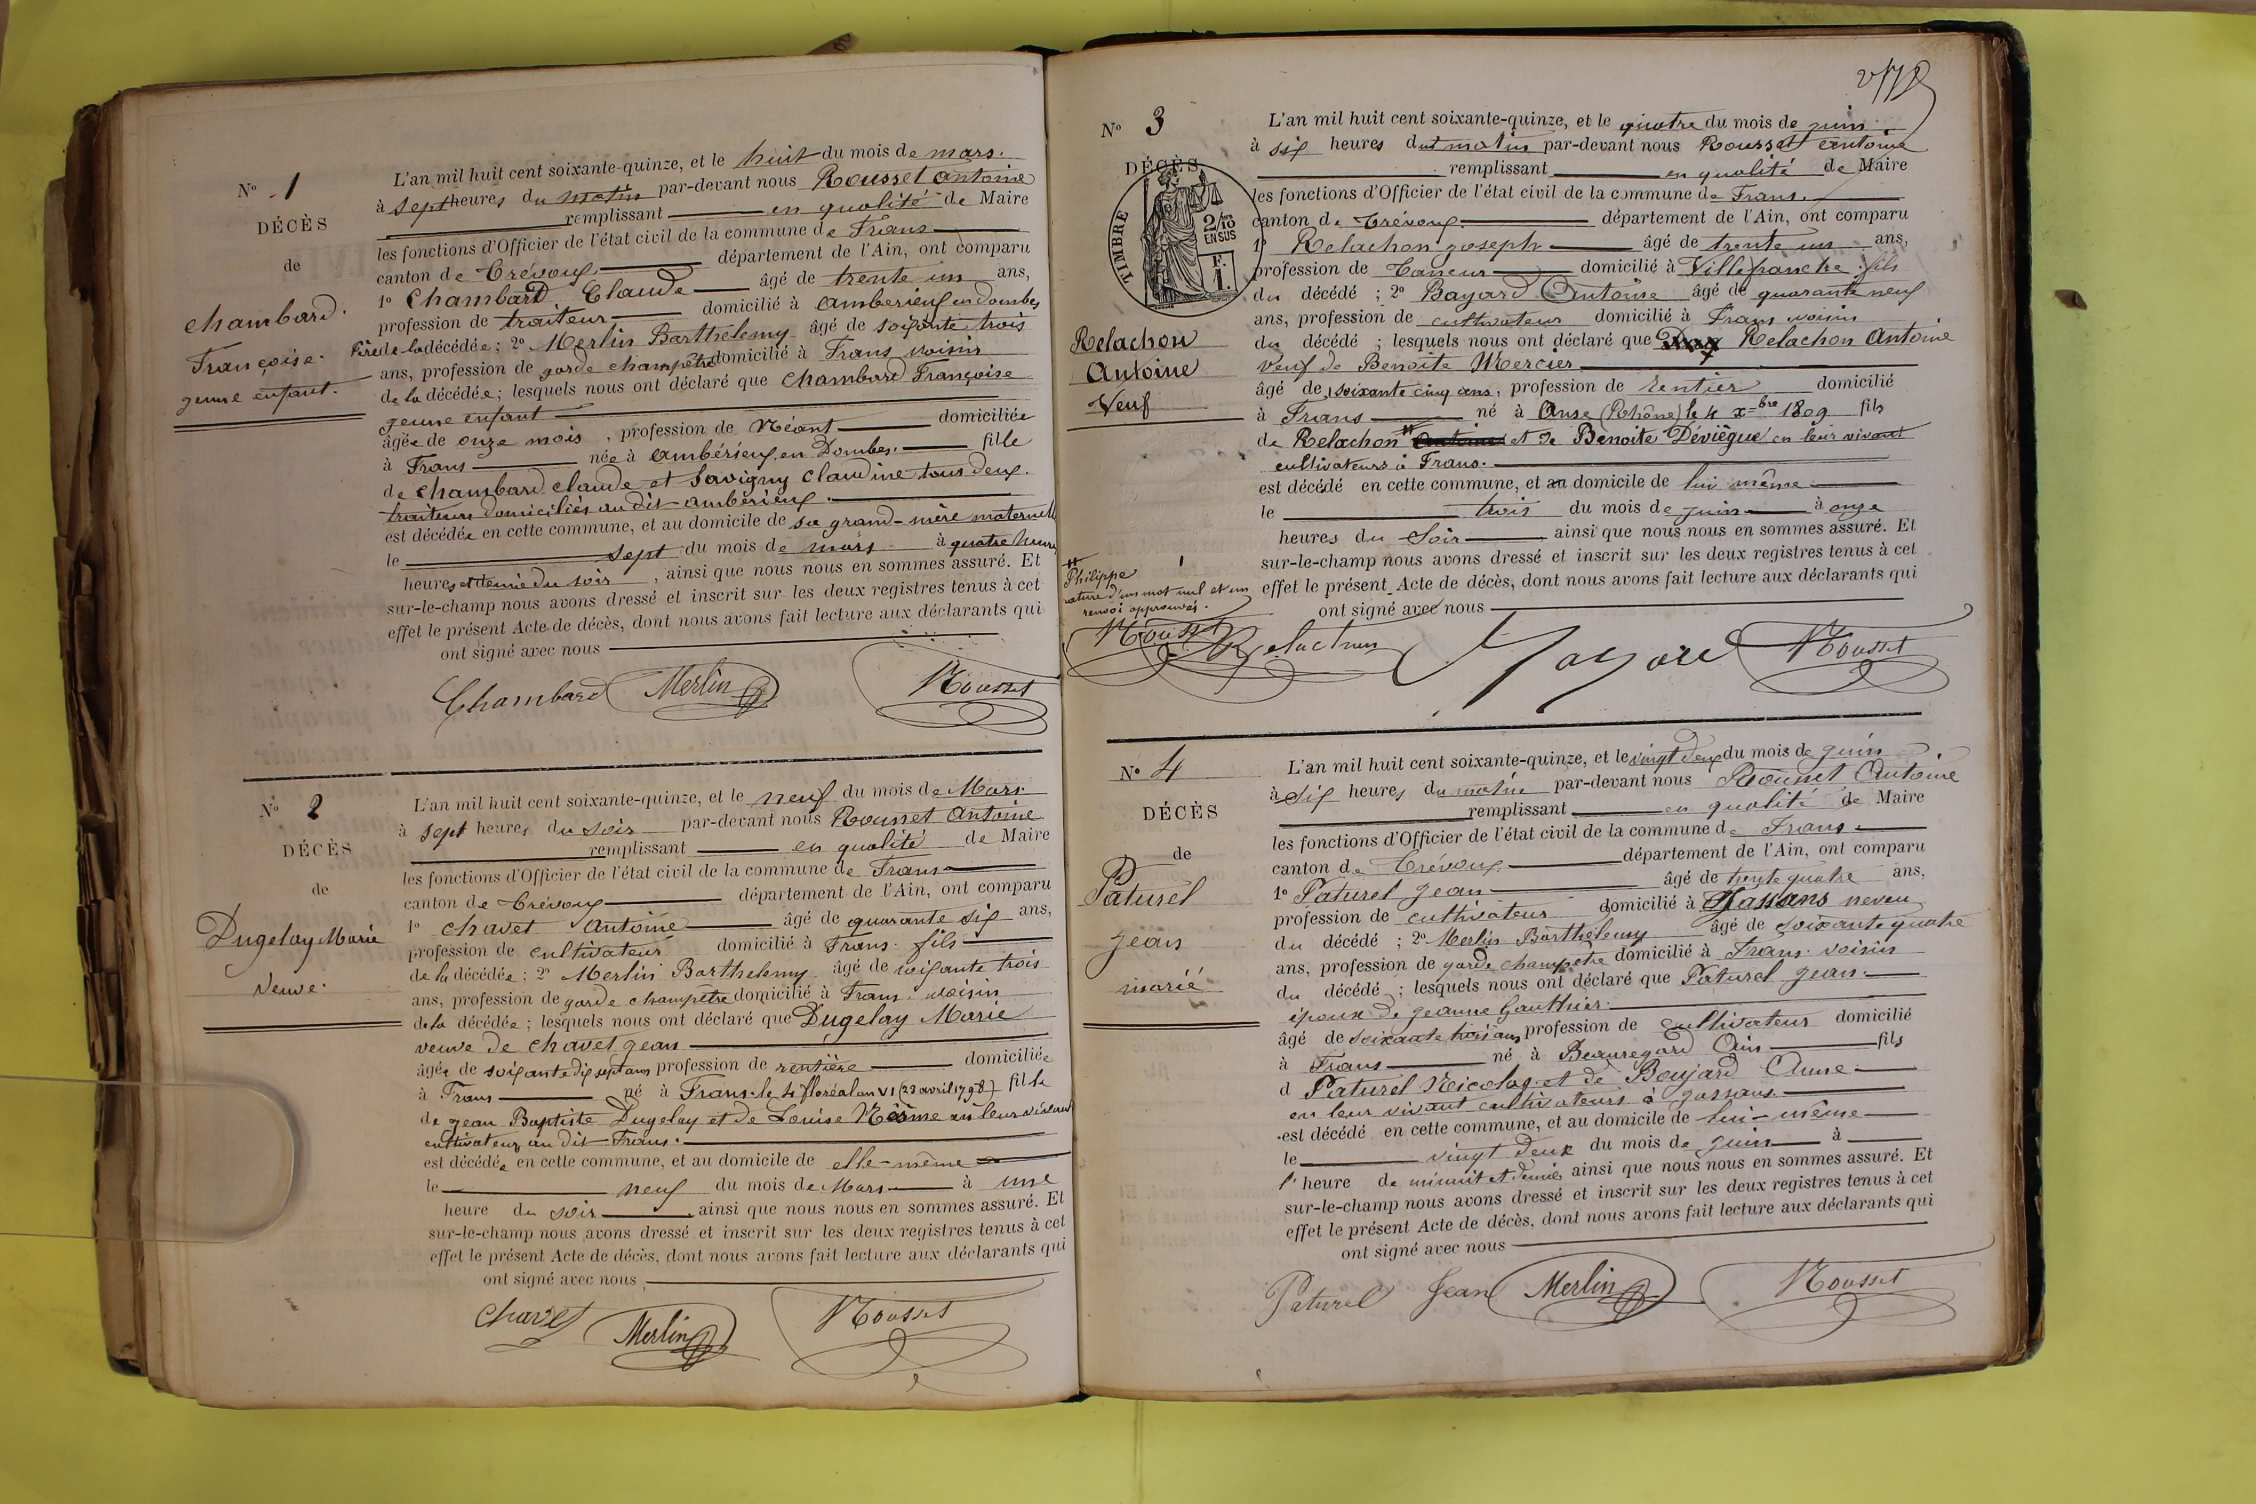 N° 1
DÉCÈS
de
Chambard
Françoise
jeune enfant.
L'an mil huit cent soixante-quinze, et le huit du mois de mars
à sept heures du matin par-devant nous Rousset Antoine
remplissant en qualité de Maire
les fonctions d'Officier de l'état civil de la commune de Frans
canton de Trévoux département de l'Ain, ont comparu
1° Chambard Claude âgé de trente un ans,
profession de traiteur domicilié à Ambérieux en Dombes
Père de la décédée ; 2° Merlin Barthélemy âgé de soixante trois
ans, profession de garde champêtre domicilié à Frans voisin
de la décédée ; lesquels nous ont déclaré que Chambard Françoise
jeune enfant
âgée de onze mois, profession de Néant domiciliée
à Frans née à Ambérieux en Dombes fille
de Chambard Claude et Savigny Claudine tous deux
traiteurs domiciliés au dit Ambérieux
est décédée en cette commune, et au domicile de sa grand-mère maternelle
le sept du mois de mars à quatre heures
heures et demie du soir, ainsi que nous nous en sommes assuré. Et
sur-le-champ nous avons dressé et inscrit sur les deux registres tenus à cet
effet le présent Acte de décès, dont nous avons fait lecture aux déclarants qui
ont signé avec nous
Chambard Merlin Rousset
N° 2
DÉCÈS
de
Dugelay Marie
Veuve
L'an mil huit cent soixante-quinze, et le neuf du mois de Mars
à sept heures du soir par-devant nous Rousset Antoine
remplissant en qualité de Maire
les fonctions d'Officier de l'état civil de la commune de Frans
canton de Trévoux département de l'Ain, ont comparu
1° Chavet Antoine âgé de quarante six ans,
profession de cultivateur domicilié à Frans fils
de la décédée ; 2° Merlin Barthelemy âgé de soixante trois
ans, profession de garde champêtre domicilié à Frans voisin
de la décédée ; lesquels nous ont déclaré que Dugelay Marie
veuve de Chavet Jean
âgée de soixante dix sept ans profession de rentière domiciliée
à Frans né à Frans le 4 floréal an VI (23 avril 1798) fille
de Jean Baptiste Dugelay et de Louise Nesme en leur vivant
cultivateurs au dit Frans.
est décédée en cette commune, et au domicile de elle-même
le neuf du mois de Mars à une
heure du soir ainsi que nous nous en sommes assuré. Et
sur-le-champ nous avons dressé et inscrit sur les deux registres tenus à cet
effet le présent Acte de décès, dont nous avons fait lecture aux déclarants qui
ont signé avec nous
Chavet Merlin Rousset
N° 3
DÉCÈS
TIMBRE
2/10 EN SUS
F. 1.
Relachon
Antoine
Veuf
L'an mil huit cent soixante-quinze, et le quatre du mois de juin
à six heures du matin par-devant nous Rousset Antoine
remplissant en qualité de Maire
les fonctions d'Officier de l'état civil de la commune de Frans.
canton de Trévoux département de l'Ain, ont comparu
1° Relachon Joseph âgé de trente un ans,
profession de Tanneur domicilié à Villefranche fils
du décédé ; 2° Bayard Antoine âgé de quarante neuf
ans, profession de cultivateur domicilié à Frans voisin
du décédé ; lesquels nous ont déclaré que Relachon Antoine
veuf de Benoite Mercier
âgé de soixante cinq ans, profession de rentier domicilié
à Frans né à Anse (Rhône) le 4 Xbre 1809 fils
de Relachon Antoine et de Benoite Déviègue en leur vivant
cultivateurs à Frans.
est décédé en cette commune, et au domicile de lui même
le trois du mois de juin à onze
heures du Soir ainsi que nous nous en sommes assuré. Et
sur-le-champ nous avons dressé et inscrit sur les deux registres tenus à cet
effet le présent Acte de décès, dont nous avons fait lecture aux déclarants qui
ont signé avec nous
Philippe
rature d'un mot nul et un
renvoi approuvés.
Rousset Relachon Bayard Rousset
N° 4
DÉCÈS
de
Paturel
Jean
marié
L'an mil huit cent soixante-quinze, et le vingt deux du mois de juin
à six heures du matin par-devant nous Rousset Antoine
remplissant en qualité de Maire
les fonctions d'Officier de l'état civil de la commune de Frans
canton de Trévoux département de l'Ain, ont comparu
1° Paturel Jean âgé de trente quatre ans,
profession de cultivateur domicilié à Jassans neveu
du décédé ; 2° Merlin Barthélemy âgé de soixante quatre
ans, profession de garde champêtre domicilié à Frans voisin
du décédé ; lesquels nous ont déclaré que Paturel Jean
époux de Jeanne Gauthier
âgé de soixante trois ans profession de cultivateur domicilié
à Frans né à Beauregard Ain fils
d Paturel Nicolas et de Boujard Anne
en leur vivant cultivateurs à Jassans
est décédé en cette commune, et au domicile de lui-même
le vingt deux du mois de juin à
l'heure de minuit et demie ainsi que nous nous en sommes assuré. Et
sur-le-champ nous avons dressé et inscrit sur les deux registres tenus à cet
effet le présent Acte de décès, dont nous avons fait lecture aux déclarants qui
ont signé avec nous
Paturel Jean Merlin Rousset